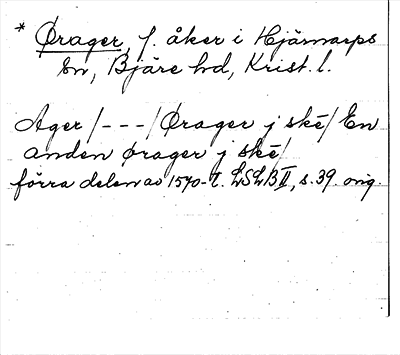 * Ørager, f. åker i Hjärnarps
sn, Bjäre hd, Krist. l.
Ager/---/Ørager j ske/ En
anden ørager j ske/
förra delen av 1570-t. LSLB II, s. 39. orig.